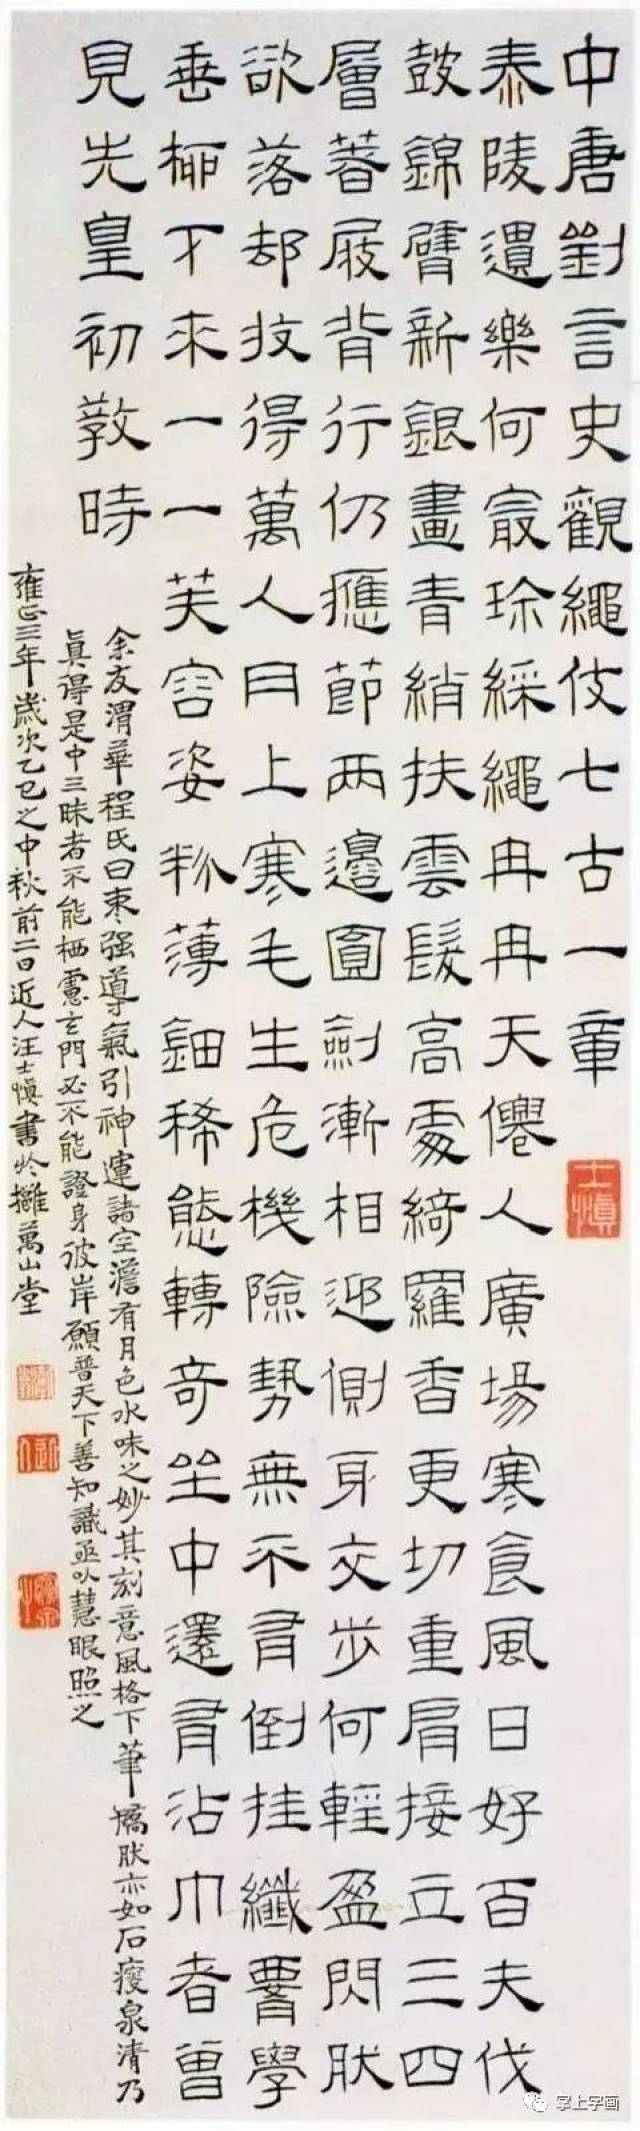 中唐劉言史觀繩伎七古一章
士慎
泰陵遺樂何最珍綵繩冉冉天僊人廣場寒食風日好百夫伐
鼓錦臂新銀畫青綃扶雲髮高處綺羅香更切重肩接立三四
層著屐背行仍應節兩邊圓劍漸相迎側身交步何輕盈閃肰
欲落却扙得萬人冂上寒毛生危機險勢無不有倒挂纖腰學
垂柳下來一一芙容姿粉薄鈿稀態轉奇坐中還有沾巾者曾
見先皇初教時
余友渭華程氏曰棗强導氣引神運諸空澹有月色水味之妙其刻意風格下筆矯肰亦如石瘦泉清乃
真得是中三昧者不能栖慮玄門必不能證身彼岸願普天下善知識亟以慧眼照之
雍正三年歲次乙巳之中秋前二日近人汪士慎書於攤萬山堂
近人
掌上字画